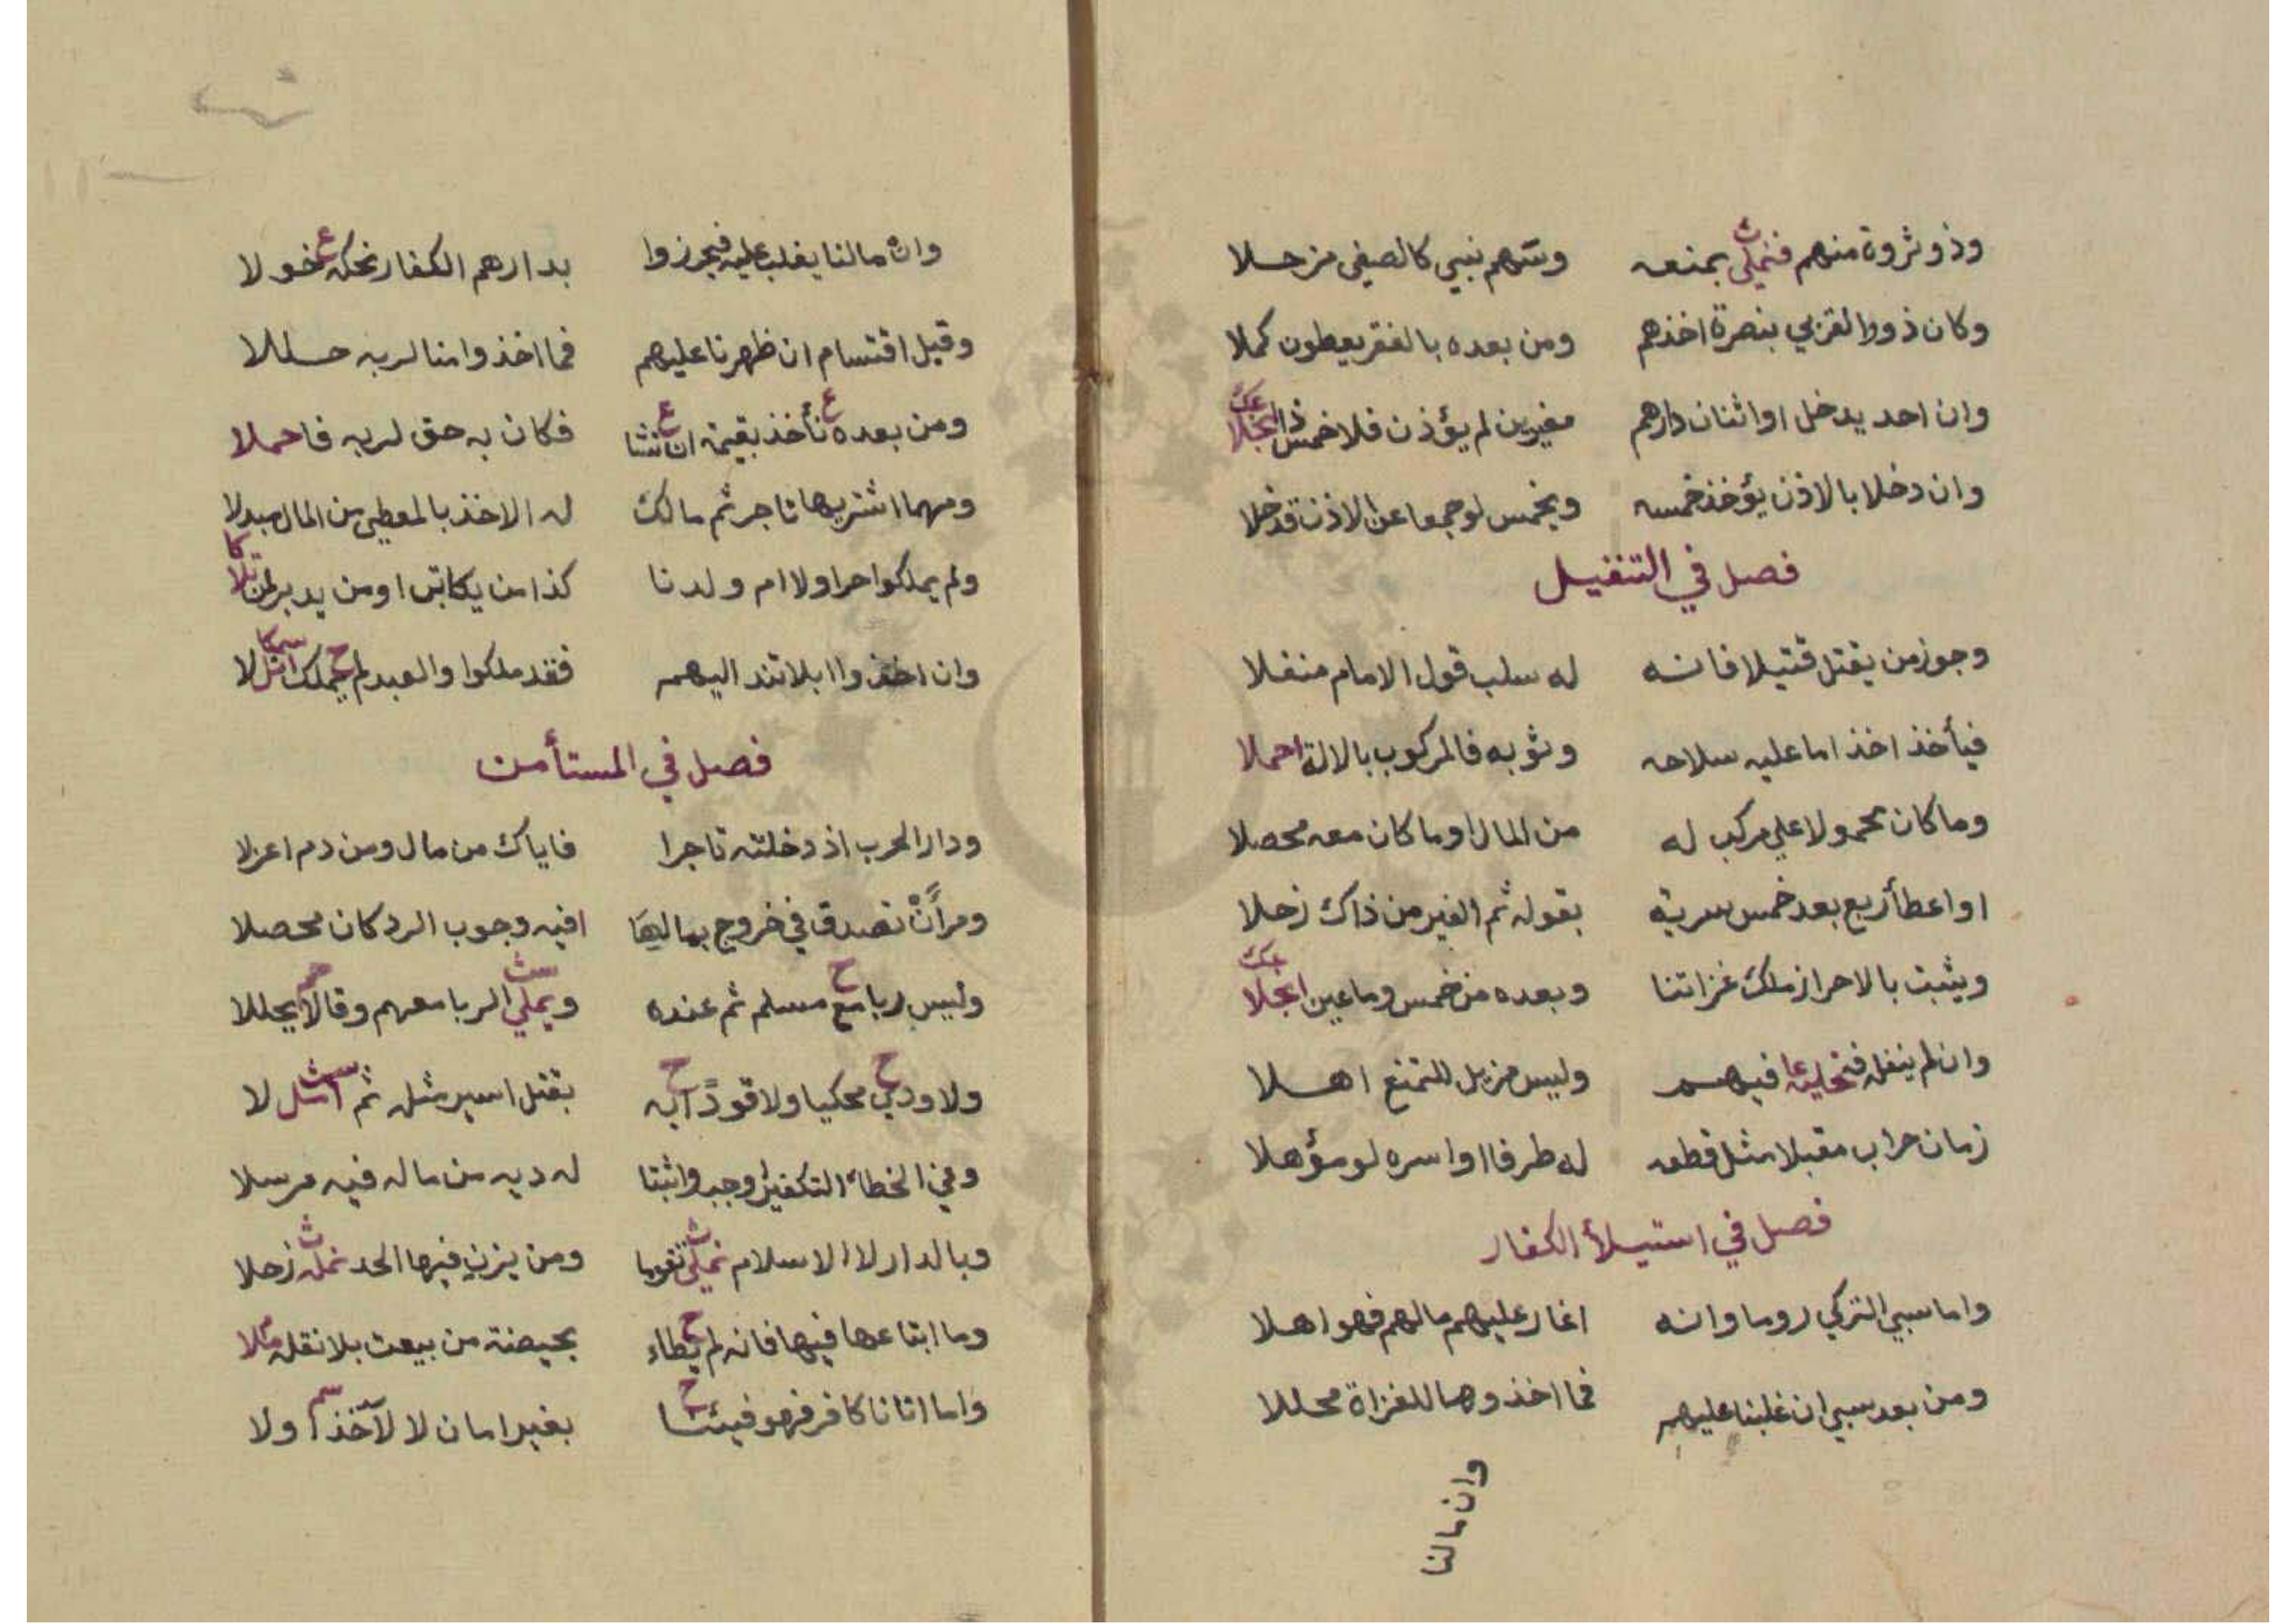 وذو ثروة منهم فنملي بمنعه وسهم نبي كالصفي مزحلا
وكان ذووا لقربي بنصرة اخذهم ومن بعده بالفقر يعطون كملا
وان احد يدخل او اثنان دارهم مغيرين لم يؤذن فلا خمس ذا انجلا
وان دخلا بالاذن يؤخذ خمسه ويخمس لو جمعا عن الاذن قد خلا
فصل في التنفيل
وجوز من يقتل قتيلا فانه له سلب قول الامام منفلا
فيأخذ اخذ اما عليه سلاحه وثوبه فالمركوب بالالة احملا
وما كان محمولا علي مركب له من المال او ما كان معه محصلا
او اعطأ ربع بعد خمس سرية بقوله ثم الغير من ذاك زحلا
ويثبت بالاحراز ملك غزاتنا وبعده من خمس وما عين انجلا
وان لم ينفله فيهم وليس مزيل للتمنع اهلا
زمان حراب مقبلا مثل قطعه له طرفا او اسره لو مؤهلا
فصل في استيلأ الكفار
واما سبي التركي روما وانه اغار عليهم مالهم فهو اهلا
ومن بعد سبي ان غلبنا عليهم فما اخذوها للغزاة محللا
وان مالنا
وان مالنا يغلب عليه فيحرزوا بدارهم الكفار نحكه خولا
وقبل اقتسام ان ظهرنا عليهم فما اخذوا منا لربه حللا
ومن بعده نأخذ بقيمة ان نشا فكان به حق لربه فاحملا
ومهما اشتريها تاجر ثم مالك له الاخذ بالمعطي من المال مبدلا
ولم يملكوا حرا ولا ام ولدنا كذا من يكاتب او من يدبر لمن تلا
وان اخذوا ابلا تند اليهم فقد ملكوا والعبد لم يملك امثلا
فصل في المستأمن
ودار الحرب اذ دخلته تاجرا فاياك من مال ومن دم اعزلا
ومرأن تصدق في خروج بمالها افيه وجوب الرد كان محصلا
وليس ربا مع مسلم ثم عنده ويملي الربا معهم وقالا يحللا
ولا ودي محكيا ولا قودا به بقتل اسير مثله ثم امثل لا
وفي الخطاء التكفير اوجب واثبتا له ديه من ماله فيه مرسلا
وبالدار لا الاسلام نملي تقوما ومن يزن فيها الحد نمله زحلا
وما ابتاعها فيها فانه لم يطاء بحيضة من بيعت بلا نقله ملا
واما اتانا كافر فهو فيئنا بغير امان لا لآخذ اولا